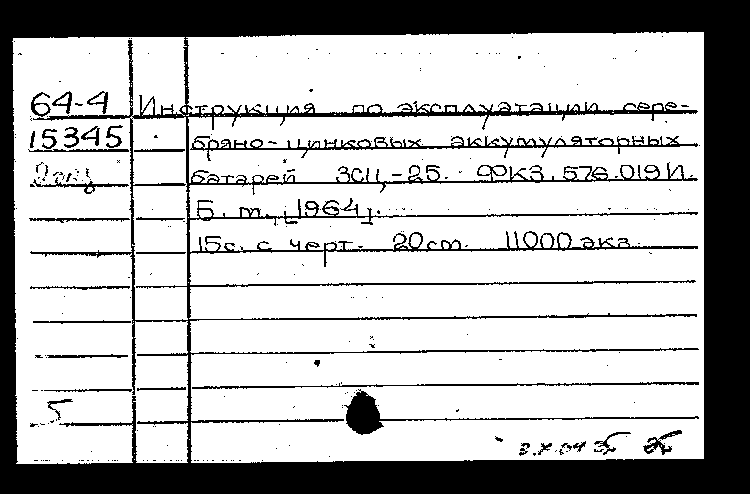 64-4 Инструкция по эксплуатации сере-
15345 бряно-цинковых аккумуляторных
2 экз батарей 3СЦ-25. ФК3.576.019И.
Б. м., [1964].
15с. с черт. 20см. 11000 экз.
5